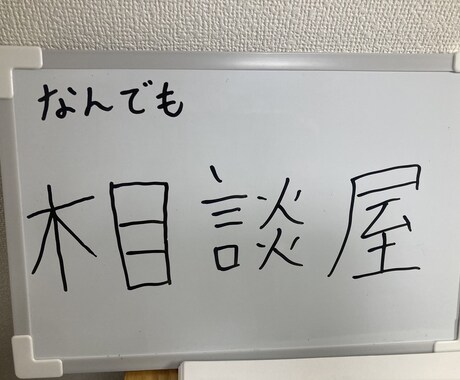 なんでも
相談屋